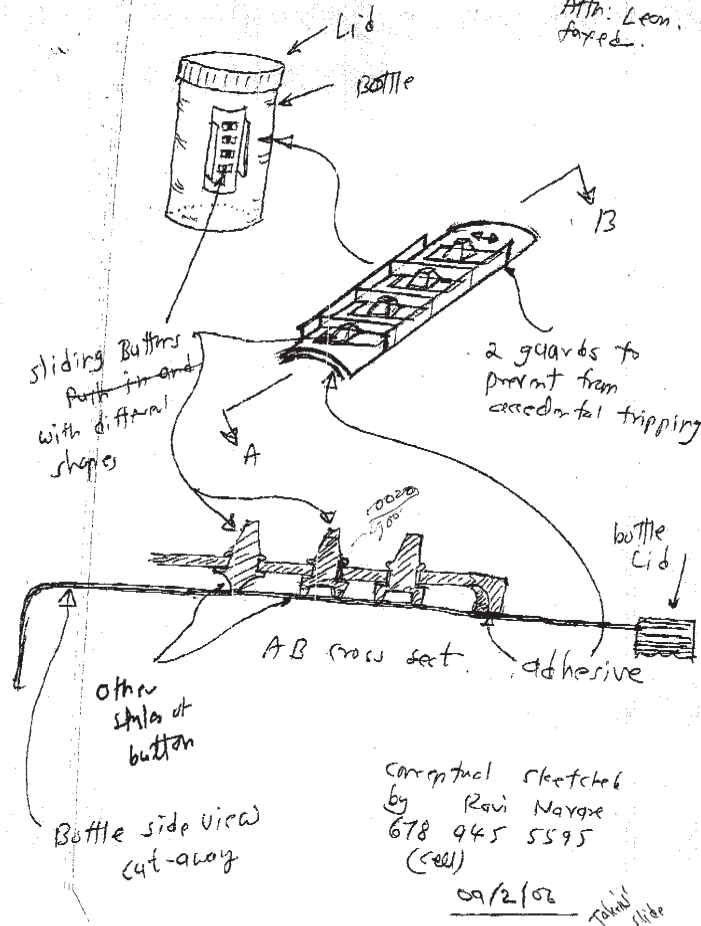 Attn: Leon.
faxed.
Lid
Bottle
B
sliding Buttons
Push in and
with different
shapes
2 guards to
prevent from
accedental tripping
A
bottle
Lid
AB cross sect.
adhesive
other
styles of
button
Bottle side view
cut-away
conceptual sketches
by Ravi
678 945 5595
(cell)
09/2/06
slide